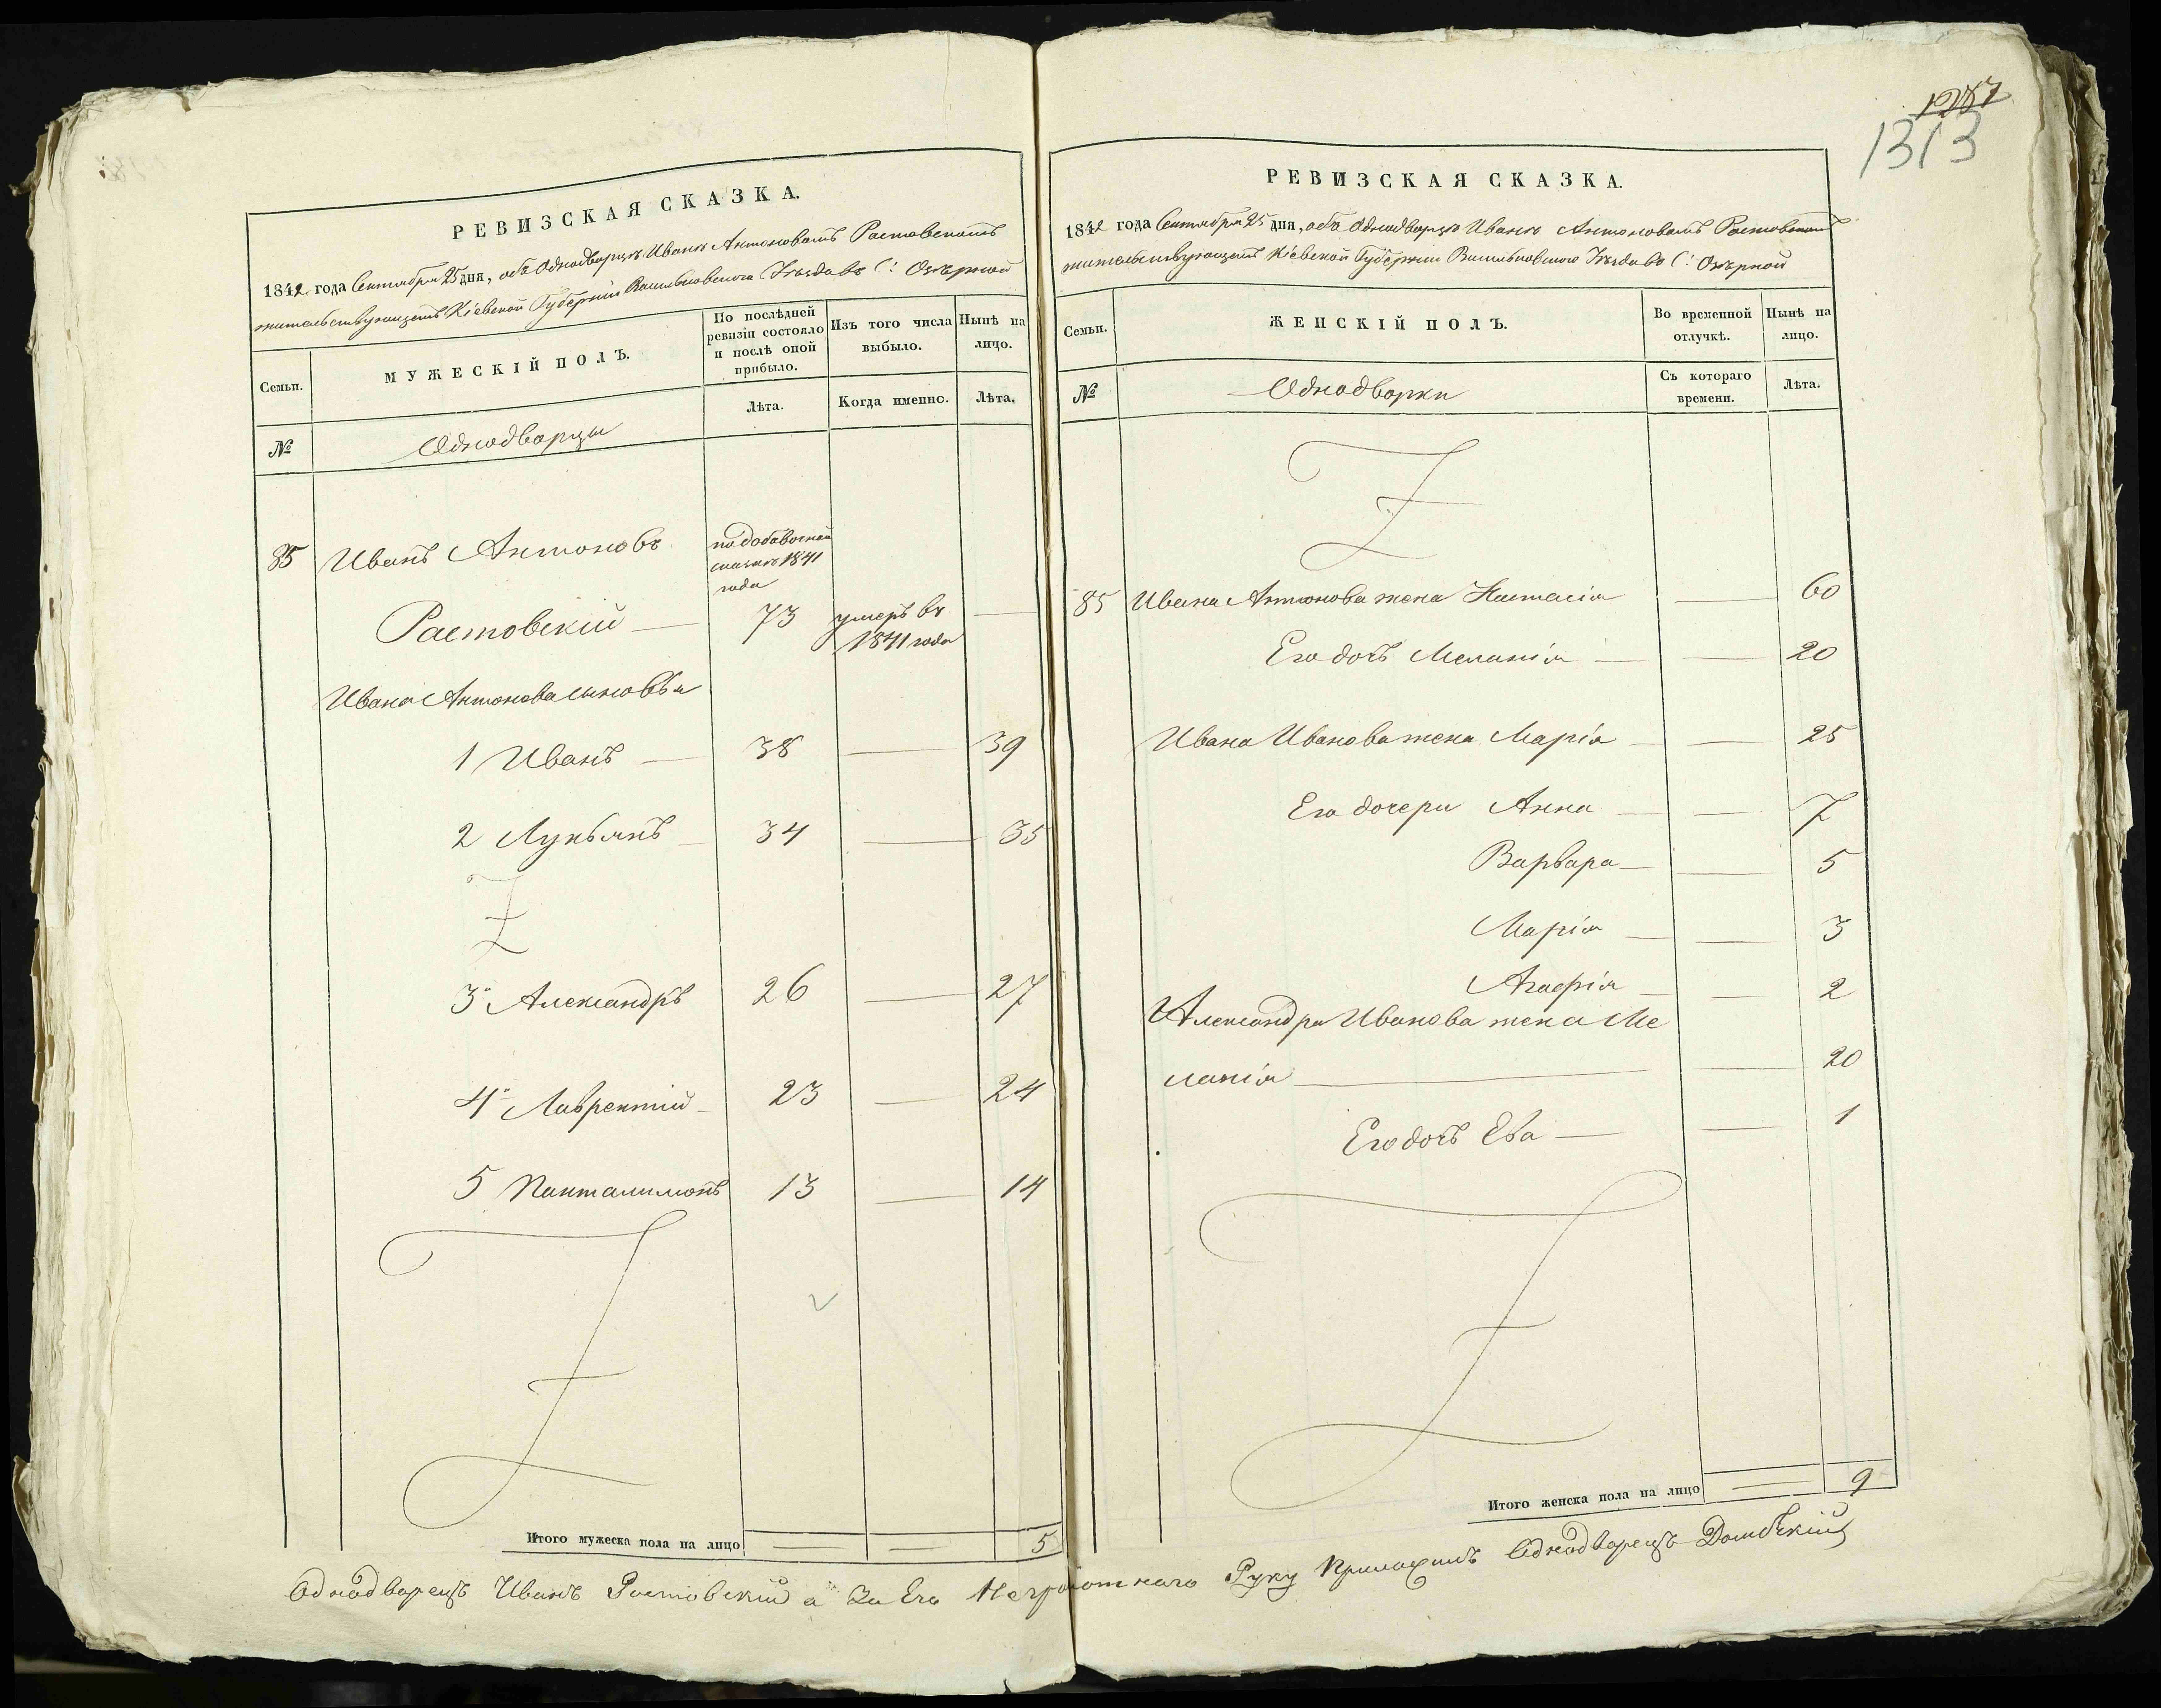 РЕВИЗСКАЯ СКАЗКА.
1842 года Сентября 25 дня, объ Однодворцѣ Иванѣ Антоновомъ Растовскомъ
жительствующемъ Кіевской Губерніи Васильковскаго Уѣзда въ С: Озѣрной
Семьи.
МУЖЕСКІЙ ПОЛЪ.
По послѣдней ревизіи состояло и послѣ оной прибыло.
Изъ того числа выбыло.
Нынѣ на лицо.
№
Однодворцы
Лѣта.
Когда именно.
Лѣта.
85 Иванъ Антоновъ
по добавочной
сказкѣ 1841
года
Растовскій — 73 умеръ въ —
1841 года
Ивана Антонова сыновья
1 Иванъ — 38 — 39
2 Лукьянъ — 34 — 35
3й Александръ 26 — 27
4й Лаврентій — 23 — 24
5 Панталимонъ 13 — 14
Итого мужеска пола на лицо — — 5
1313
РЕВИЗСКАЯ СКАЗКА.
1842 года Сентября 25 дня, объ Однодворцѣ Иванѣ Антоновомъ Растовскомъ
жительствующемъ Кіевской Губерніи Васильковскаго Уѣзда въ С: Озѣрной
Семьи.
ЖЕНСКІЙ ПОЛЪ.
Во временной отлучкѣ.
Нынѣ на лицо.
№
Однодворки
Съ котораго времени.
Лѣта.
85 Ивана Антонова жена Настасія — 60
Его дочь Меланія — — 20
Ивана Иванова жена Марія — — 25
Его дочери Анна — — 7
Варвара — — 5
Марія — — 3
Агафія — — 2
Александра Иванова жена Ме
ланія — — 20
Его дочь Ева — — 1
Итого женска пола на лицо — 9
Однодворецъ Иванъ Растовскій а За Его Неграмотнаго Руку Приложилъ Однодворецъ Домбскій